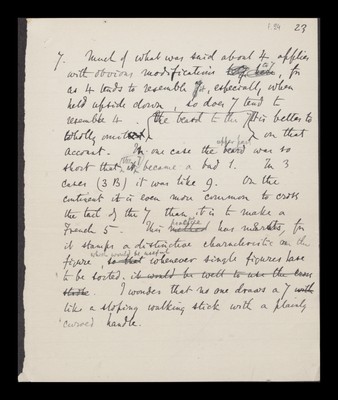 1.24 23
7. Much of what was said about 4 applies
with obvious modifications to 7, for
as 4 tends to resemble 7, especially when
held upside down, so does 7 tend to
resemble 4. The beard to the 7 it is better to
wholly omit on that
account. In one case the upper part was so
short that the 7 became a bad 1. In 3
cases (3 B) it was like 9. On the
continent it is even more common to cross
the tail of the 7 than it is to make a
French 5. This practice has merits, for
it stamps a distinctive characteristic on the
figure, which would be useful whenever single figures have
to be sorted. it would be well to use the cross
stroke. I wonder that no one draws a 7
like a sloping walking stick with a plainly
curved handle.